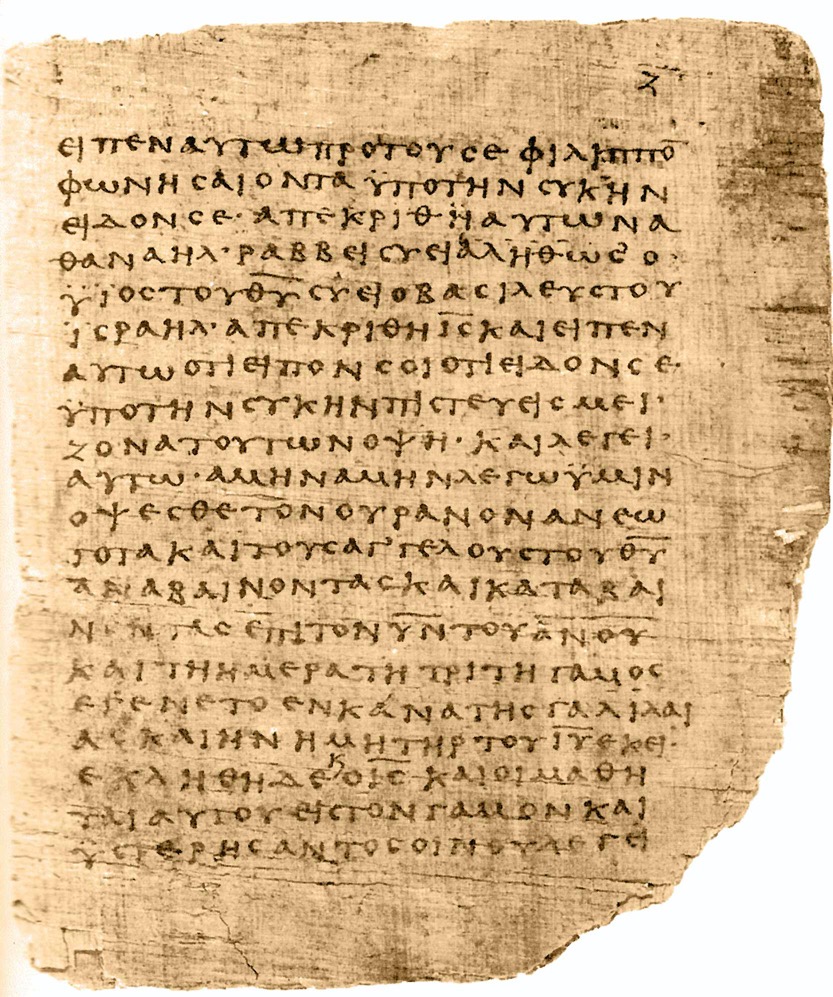 ζ
ειπεναυτωπροτουσεφιλιππο̅
φωνησαιονταϋποτηνσυκην
ειδονσε·απεκριθηαυτωνα
θαναηλ·ραββεισυειαληθωσο·
ϋιοστουθ̅υ̅συειοβασιλευστου
ϊσραηλ·απεκριθηι̅σ̅καιειπεν
αυτωοτιειπονσοιοτιειδονσε·
ϋποτηνσυκηνπιστευεισμει·
ζονατουτωνοψη·καιλεγει·
αυτω·αμηναμηνλεγωϋμιν
οψεσθετονουρανονανεω
γοτακαιτουσαγ᾽γελουστουθ̅υ̅
αναβαινοντασκαικαταβαι
νοντασεπιτονυ̅ν̅τουα̅ν̅ο̅υ̅
καιτηημερατητριτηγαμος
εγενετοενκανατησγαλιλαι
ασκαιηνημητηρ·τουι̅υ̅εκει·
εκληθηδεκοι̅σ̅καιοιμαθη
ταιαυτουειστονγαμονκαι
ϋστερησαντοσοινουλεγει